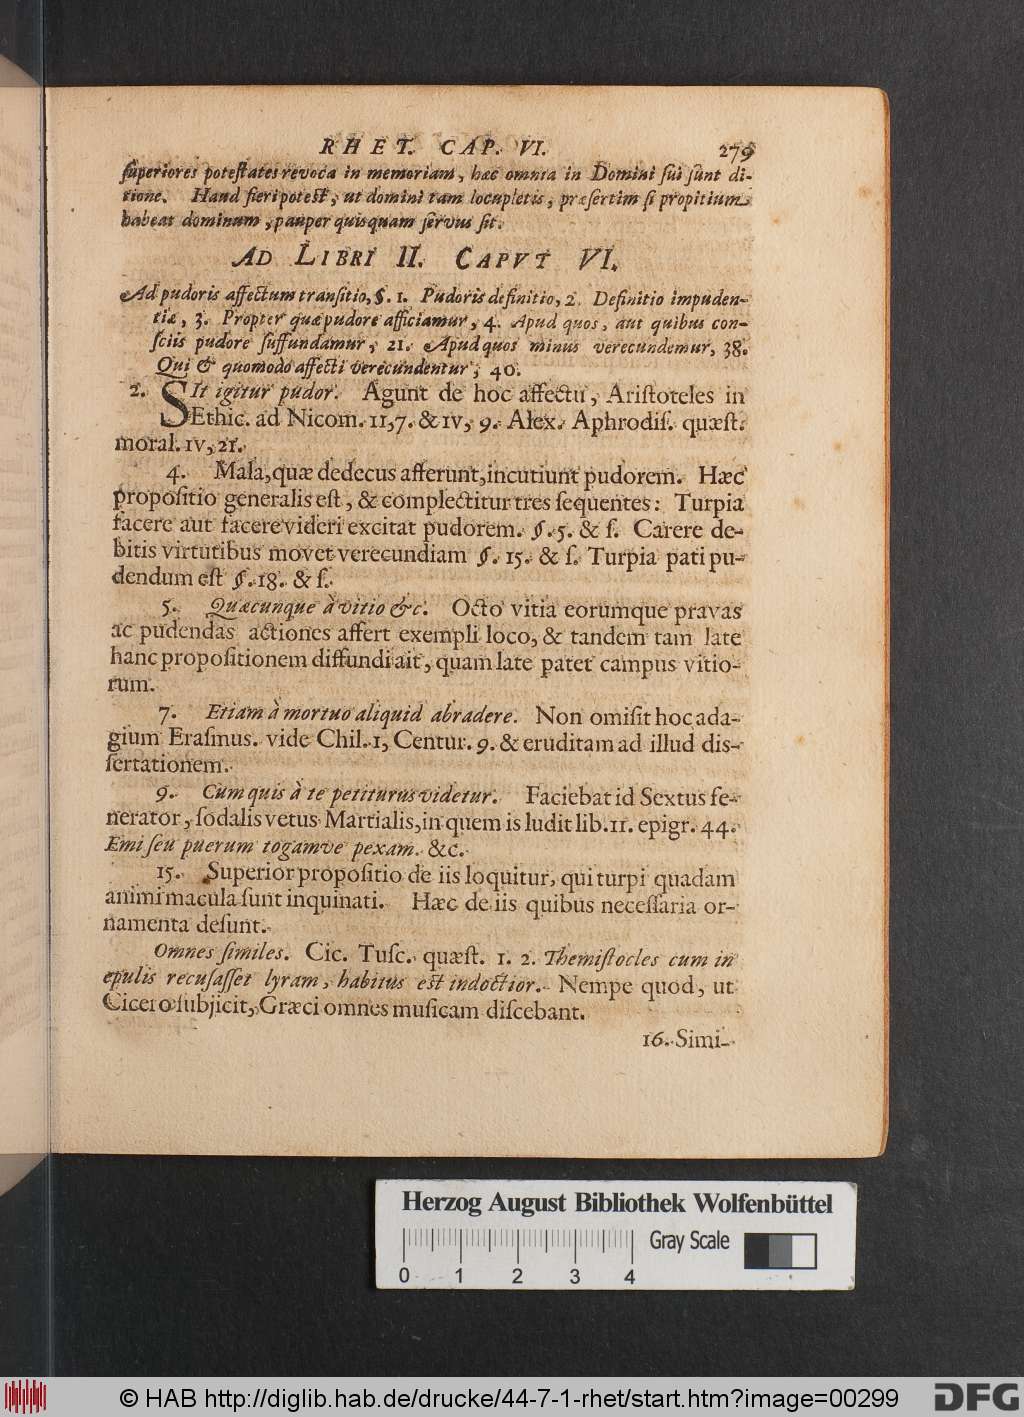 RHET. CAP. VI. 279
ſuperiores poteſtates revoca in memoriam, hæc omnia in Domini ſui ſunt di-
tione. Haud fieri poteſt, ut domini tam locupletis, præſertim ſi propitium
habeat dominum, pauper quisquam ſervus ſit.
AD LIBRI II. CAPVT VI.
Ad pudoris affectum tranſitio, §. 1. Pudoris definitio, 2. Definitio impuden-
tiæ, 3. Propter quæ pudore afficiamur, 4. Apud quos, aut quibus con-
ſciis pudore ſuffundamur, 21. Apud quos minus verecundemur, 38.
Qui & quomodo affecti verecundentur, 40.
2. SIt igitur pudor. Agunt de hoc affectu, Ariſtoteles in
Ethic. ad Nicom. 11,7. & IV, 9. Alex. Aphrodiſ. quæſt.
moral. IV, 21.
4. Mala, quæ dedecus afferunt, incutiunt pudorem. Hæc
propoſitio generalis eſt, & complectitur tres ſequentes: Turpia
facere aut facere videri excitat pudorem. §. 5. & ſ. Carere de-
bitis virtutibus movet verecundiam §. 15. & ſ. Turpia pati pu-
dendum eſt §. 18. & ſ.
5. Quæcunque à vitio &c. Octo vitia eorumque pravas
ac pudendas actiones affert exempli loco, & tandem tam late
hanc propoſitionem diffundi ait, quam late patet campus vitio-
rum.
7. Etiam à mortuo aliquid abradere. Non omiſit hoc ada-
gium Eraſmus. vide Chil. 1, Centur. 9. & eruditam ad illud diſ-
ſertationem.
9. Cum quis à te petiturus videtur. Faciebat id Sextus fe-
nerator, ſodalis vetus Martialis, in quem is ludit lib. 11. epigr. 44.
Emi ſeu puerum togamve pexam. &c.
15. Superior propoſitio de iis loquitur, qui turpi quadam
animi macula ſunt inquinati. Hæc de iis quibus neceſſaria or-
namenta deſunt.
Omnes ſimiles. Cic. Tuſc. quæſt. 1. 2. Themiſtocles cum in
epulis recuſaſſet lyram, habitus eſt indoctior. Nempe quod, ut
Cicero ſubjicit, Græci omnes muſicam diſcebant.
16. Simi-
Herzog August Bibliothek Wolfenbüttel
Gray Scale
0 1 2 3 4
© HAB http://diglib.hab.de/drucke/44-7-1-rhet/start.htm?image=00299
DFG